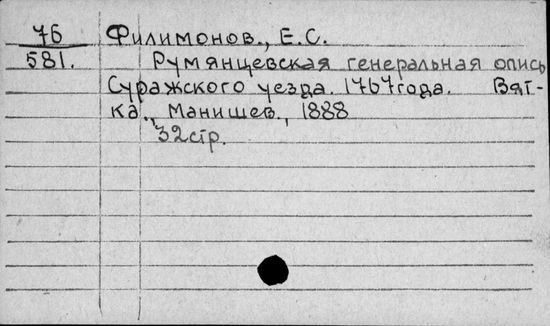 76 Филимонов., Е.С.
581. Румянцевская генеральная опись
Суражского уезда. 1767 года. Вят-
ка., Манишев., 1888
32 стр.